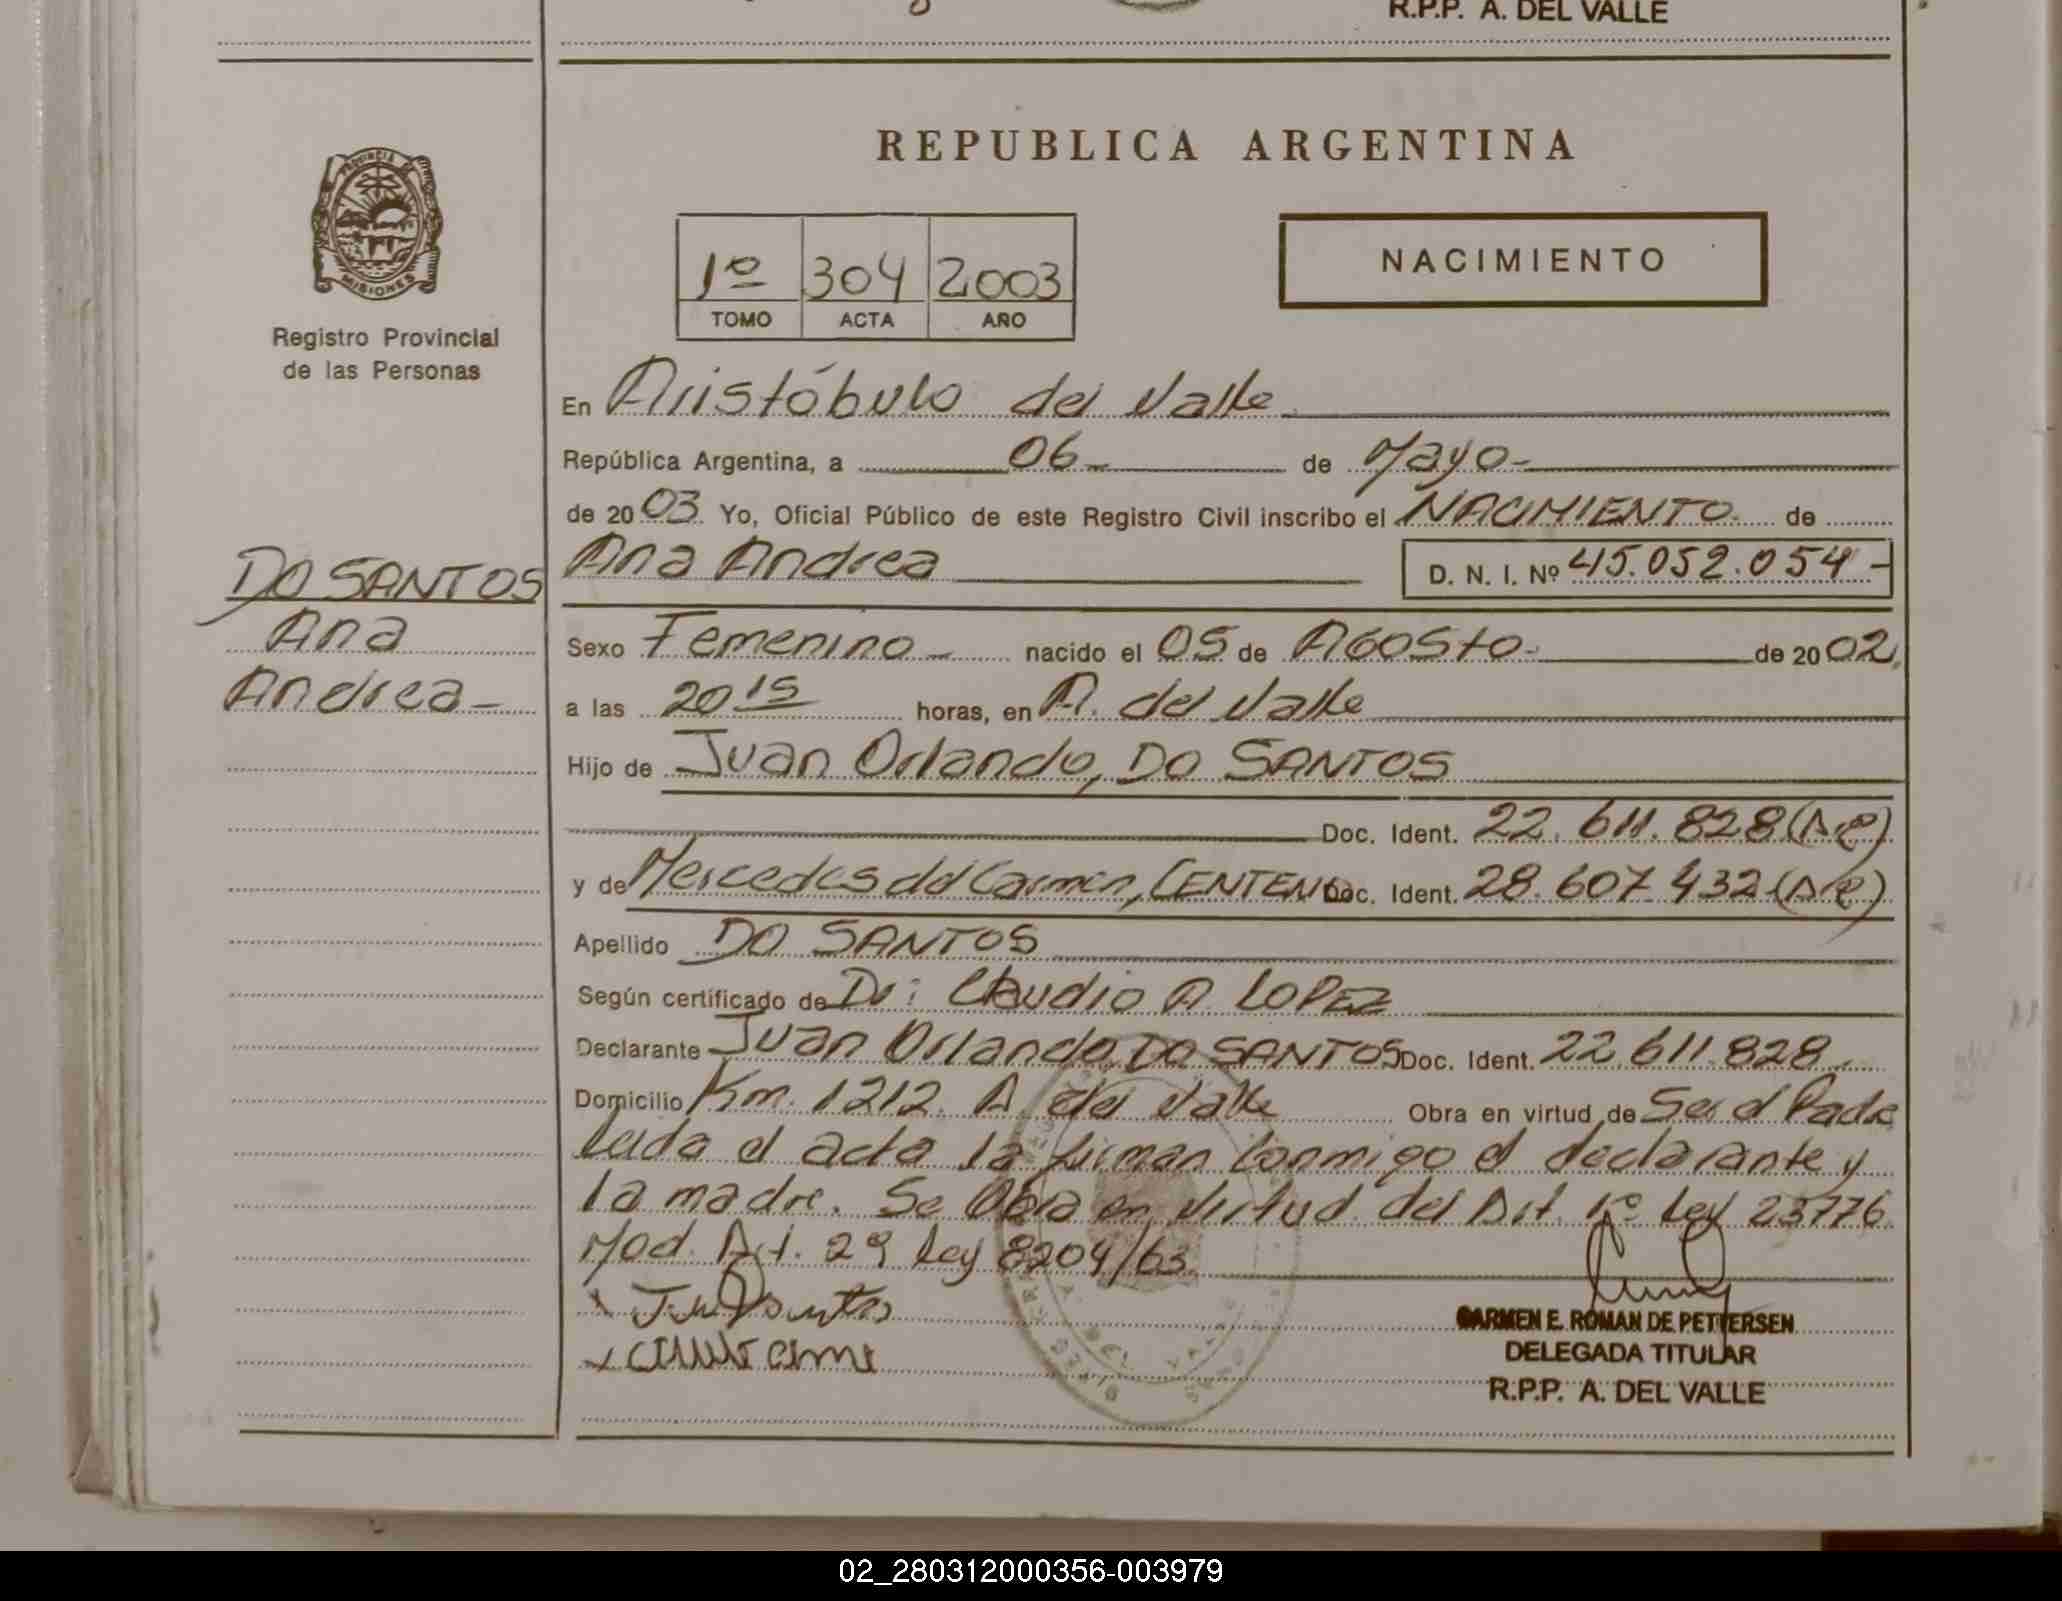 R.P.P. A. DEL VALLE
REPUBLICA ARGENTINA
PROVINCIA DE
MISIONES
Registro Provincial
de las Personas
1º 304 2003
TOMO ACTA AÑO
NACIMIENTO
En Aristóbulo del Valle
República Argentina, a 06 de Mayo
de 2003 Yo, Oficial Público de este Registro Civil inscribo el NACIMIENTO de
DO SANTOS
Ana
Andrea
Ana Andrea D. N. I. Nº 45.052.054
Sexo Femenino nacido el 05 de AGOSTO de 2002
a las 20 15 horas, en A. del Valle
Hijo de Juan Orlando, DO SANTOS
Doc. Ident. 22.611.828
y de Mercedes del Carmen, CENTENO Doc. Ident. 28.607.432
Apellido DO SANTOS
Según certificado de Dr: Claudio A LOPEZ
Declarante Juan Orlando DO SANTOS Doc. Ident. 22.611.828
Domicilio Km. 1212. A. del Valle Obra en virtud de Ser el Padre
Leida el acta la firman conmigo el declarante y
la madre. Se Obra en virtud del Art. 1º Ley 23776
Mod. Art. 29 Ley 8204/63
CARMEN E. ROMAN DE PETTERSEN
DELEGADA TITULAR
R.P.P. A. DEL VALLE
02_280312000356-003979